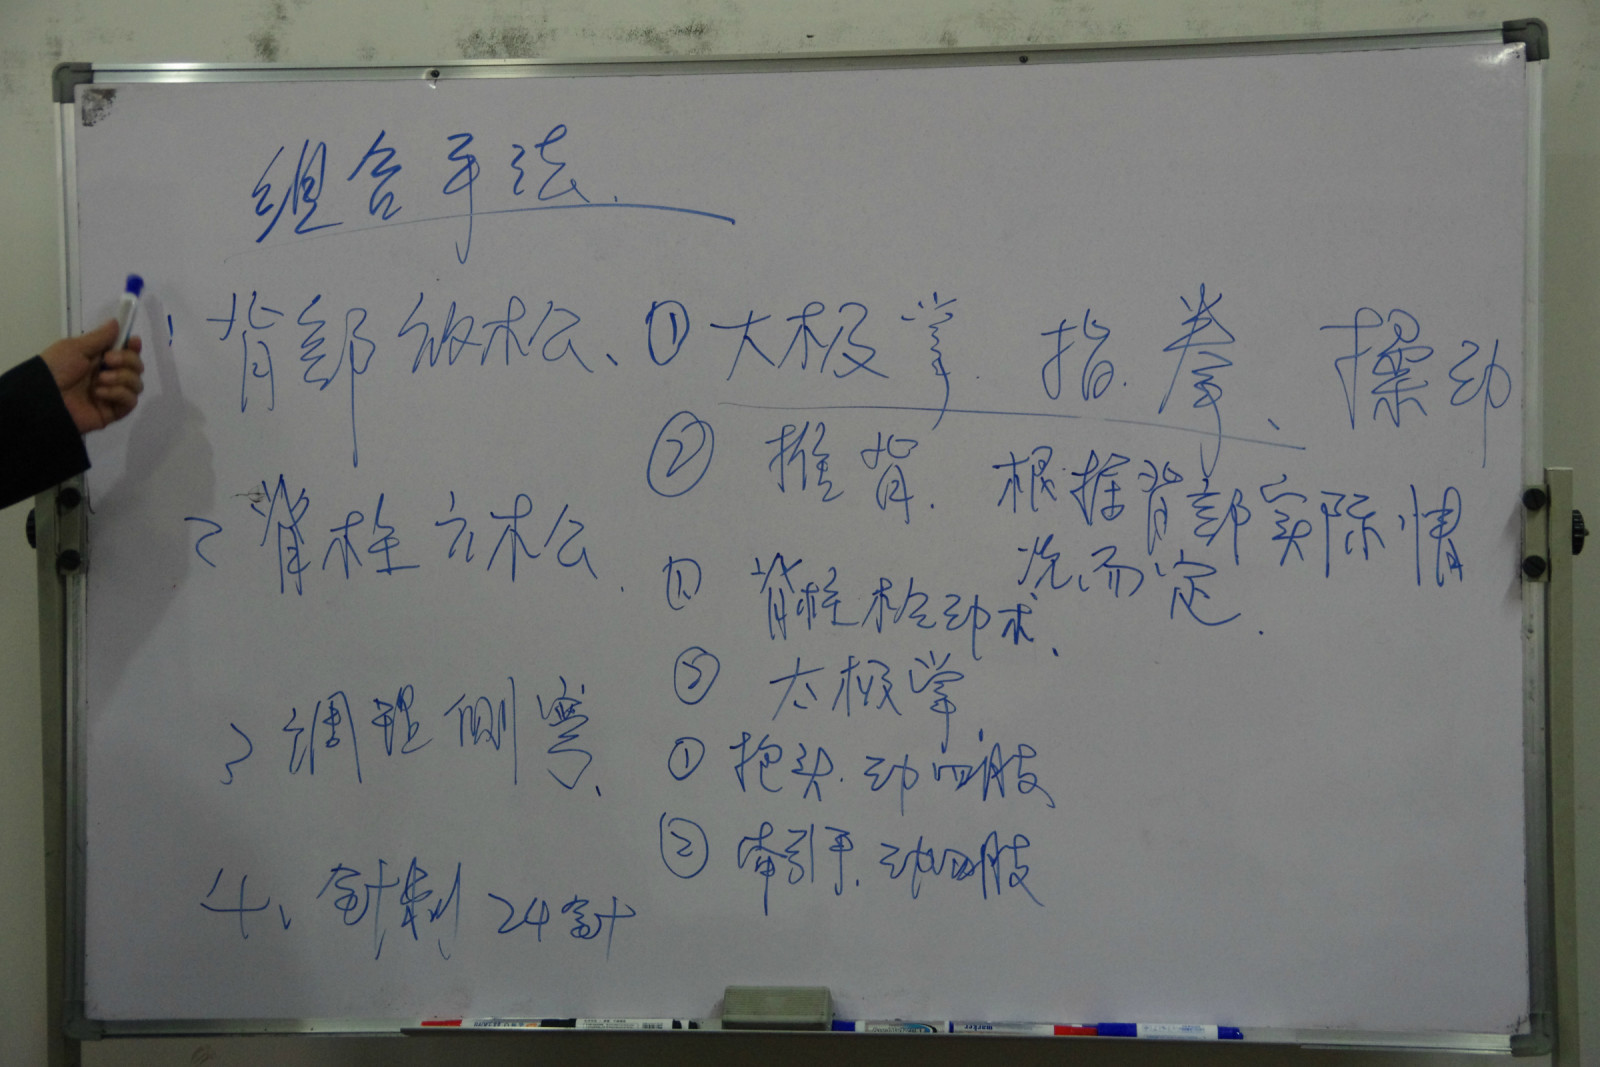 组合手法.
1 背部放松、① 太极掌. 指. 拳、揉动
② 推背. 根据背部实际情
况而定.
2 脊柱放松. ① 脊柱松动术、
② 太极掌
3 调理侧弯、① 抱头. 动四肢
② 牵引手. 动四肢
4、针刺 24针
marker